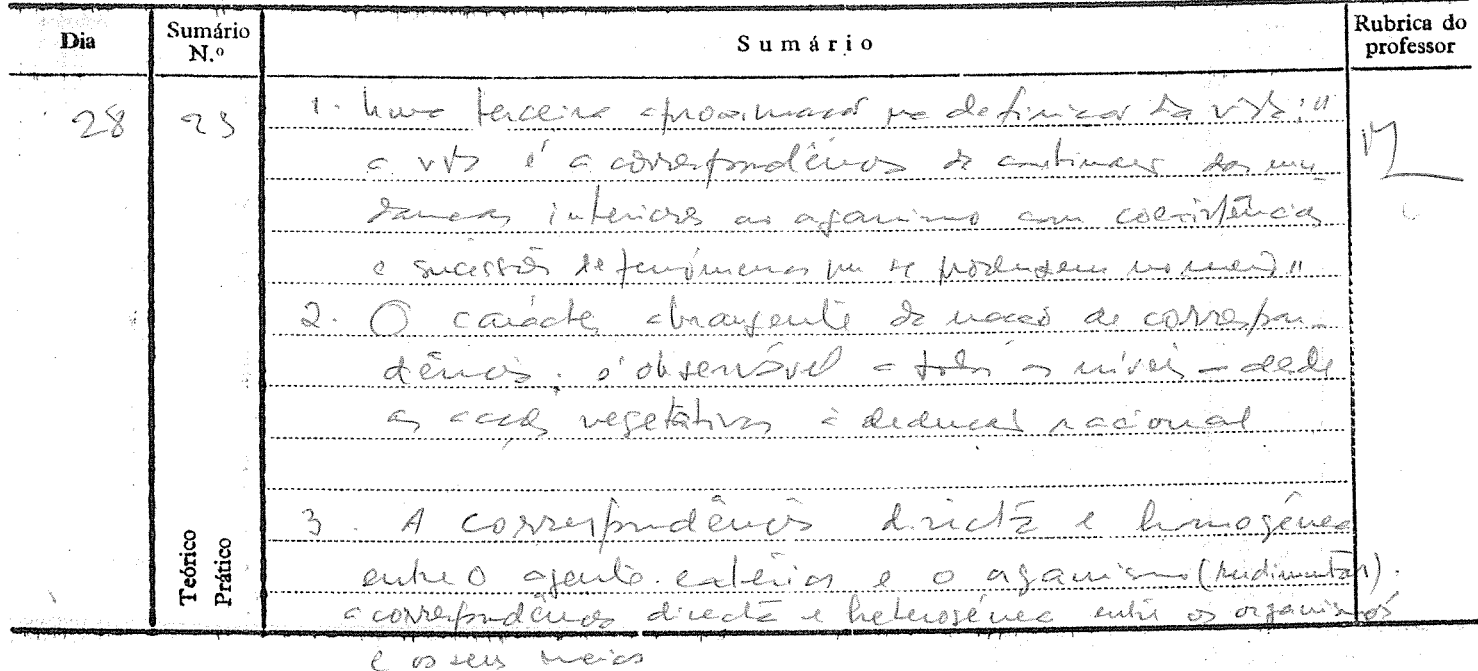 Dia Sumário N.º Sumário Rubrica do professor
28 23 1. Uma terceira aproximação na definição da vida: "
a vida é a correspondência da continuar das mu-
danças interiores ao organismo com coexistências
e sucessões de fenómenos que se produzem no meio"
2. O carácter abrangente da noção de correspon-
dência: é observável a todos os níveis - desde
as acções vegetativas à dedução racional
3. A correspondência directa e homogénea
entre o agente exterior e o organismo (rudimentar).
a correspondência directa e heterogénea entre os organismos
e os seus meios
Teórico
Prático